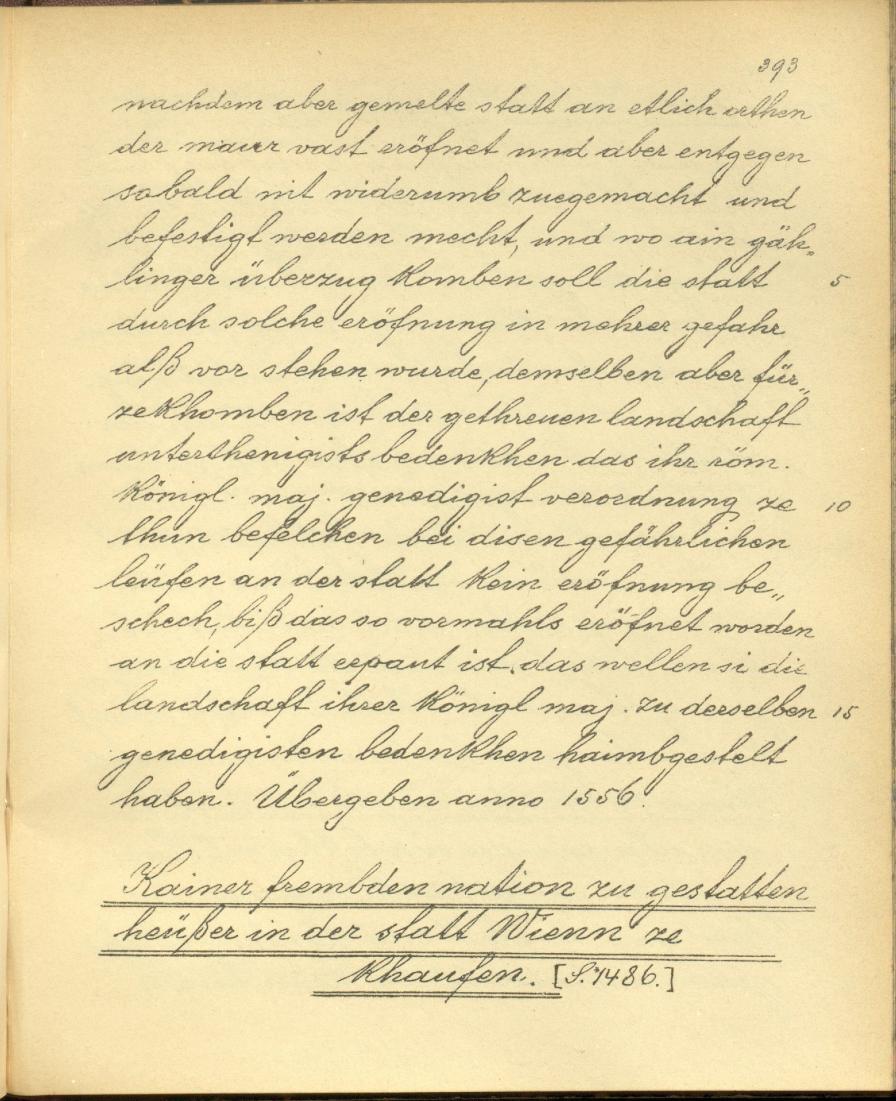 393
nachdem aber gemelte statt an etlich orthen
der maur vast eröfnet und aber entgegen
sobald nit widerumb zuegemacht und
befestigt werden mecht, und wo ain gäh„
linger überzug komben soll die statt 5
durch solche eröfnung in mehrer gefahr
alß vor stehen wurde, demselben aber für„
zekhomben ist der gethreuen landschaft
unterthenigists bedenkhen das ihr röm.
königl. maj. genedigist verordnung ze 10
thun befelchen bei disen gefährlichen
leüfen an der statt kein eröfnung be„
schech, biß das so vormahls eröfnet worden
an die statt erpaut ist. das wellen si die
landschaft ihrer königl maj. zu derselben 15
genedigisten bedenkhen haimbgestelt
haben. Übergeben anno 1556.
Kainer frembden nation zu gestatten
heüßer in der statt Wienn ze
khaufen. [S. 1486.]